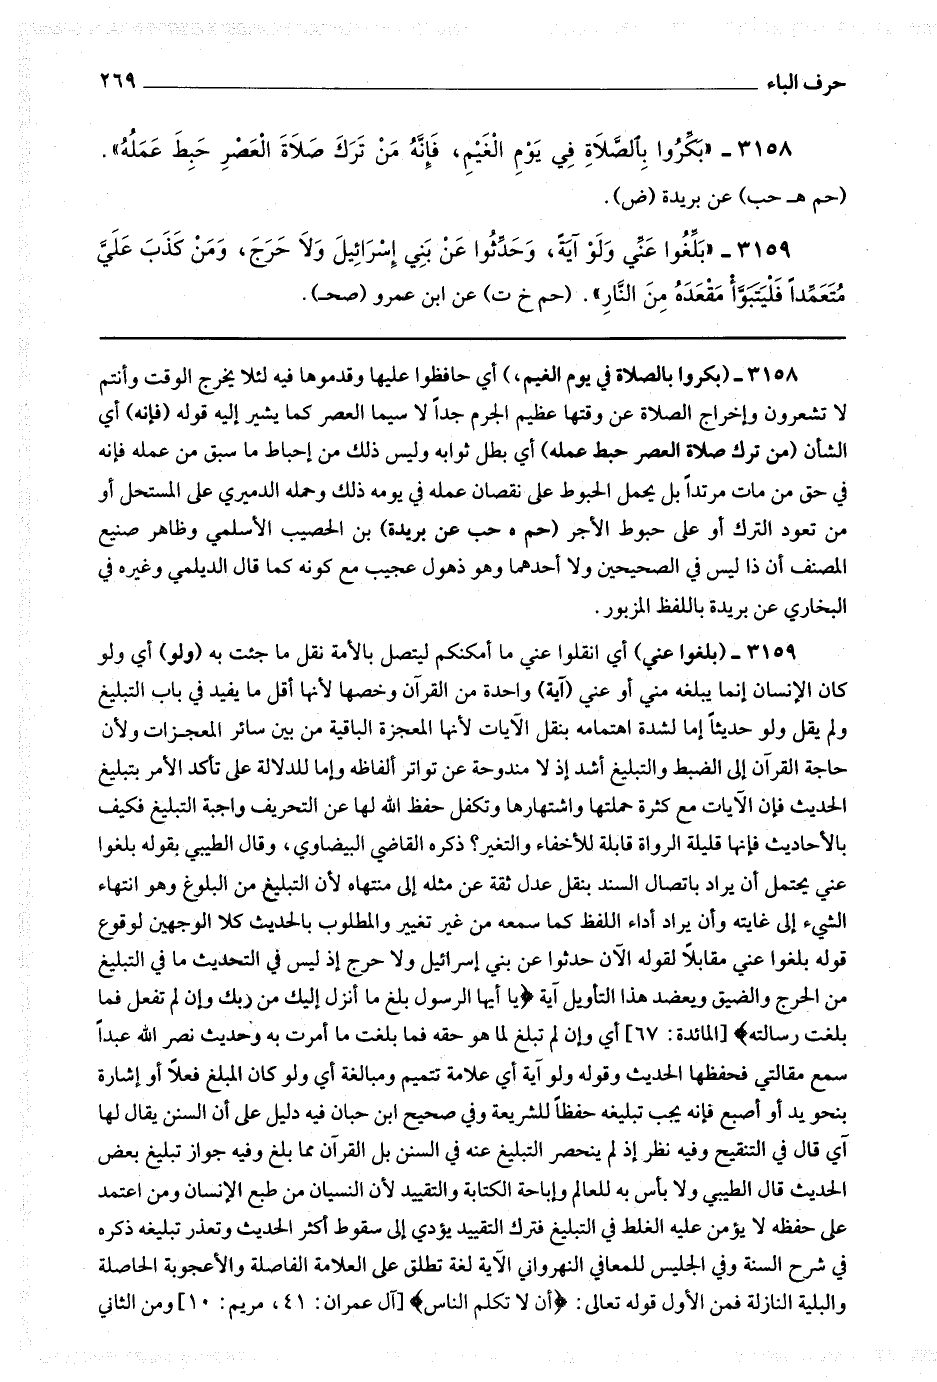 حرف الباء ٢٦٩
٣١٥٨ ـ «بَكِّرُوا بِٱلصَّلَاةِ فِي يَوْمِ الْغَيْمِ، فَإِنَّهُ مَنْ تَرَكَ صَلَاةَ الْعَصْرِ حَبِطَ عَمَلُهُ».
(حم هـ حب) عن بريدة (ض).
٣١٥٩ ـ «بَلِّغُوا عَنِّي وَلَوْ آيَةً، وَحَدِّثُوا عَنْ بَنِي إِسْرَائِيلَ وَلاَ حَرَجَ، وَمَنْ كَذَبَ عَلَيَّ
مُتَعَمِّداً فَلْيَتَبَوَّأْ مَقْعَدَهُ مِنَ النَّارِ». (حم خ ت) عن ابن عمرو (صحـ).
٣١٥٨ ـ (بكروا بالصلاة في يوم الغيم،) أي حافظوا عليها وقدموها فيه لئلا يخرج الوقت وأنتم
لا تشعرون وإخراج الصلاة عن وقتها عظيم الجرم جداً لا سيما العصر كما يشير إليه قوله (فإنه) أي
الشأن (من ترك صلاة العصر حبط عمله) أي بطل ثوابه وليس ذلك من إحباط ما سبق من عمله فإنه
في حق من مات مرتداً بل يحمل الحبوط على نقصان عمله في يومه ذلك وحمله الدميري على المستحل أو
من تعود الترك أو على حبوط الأجر (حم ه حب عن بريدة) بن الحصيب الأسلمي وظاهر صنيع
المصنف أن ذا ليس في الصحيحين ولا أحدهما وهو ذهول عجيب مع كونه كما قال الديلمي وغيره في
البخاري عن بريدة باللفظ المزبور.
٣١٥٩ ـ (بلغوا عني) أي انقلوا عني ما أمكنكم ليتصل بالأمة نقل ما جئت به (ولو) أي ولو
كان الإنسان إنما يبلغه مني أو عني (آية) واحدة من القرآن وخصها لأنها أقل ما يفيد في باب التبليغ
ولم يقل ولو حديثاً إما لشدة اهتمامه بنقل الآيات لأنها المعجزة الباقية من بين سائر المعجزات ولأن
حاجة القرآن إلى الضبط والتبليغ أشد إذ لا مندوحة عن تواتر ألفاظه وإما للدلالة على تأكد الأمر بتبليغ
الحديث فإن الآيات مع كثرة حملتها واشتهارها وتكفل حفظ الله لها عن التحريف واجبة التبليغ فكيف
بالأحاديث فإنها قليلة الرواة قابلة للأخفاء والتغير؟ ذكره القاضي البيضاوي، وقال الطيبي بقوله بلغوا
عني يحتمل أن يراد باتصال السند بنقل عدل ثقة عن مثله إلى منتهاه لأن التبليغ من البلوغ وهو انتهاء
الشيء إلى غايته وأن يراد أداء اللفظ كما سمعه من غير تغيير والمطلوب بالحديث كلا الوجهين لوقوع
قوله بلغوا عني مقابلاً لقوله الآن حدثوا عن بني إسرائيل ولا حرج إذ ليس في التحديث ما في التبليغ
من الحرج والضيق ويعضد هذا التأويل آية ﴿يا أيها الرسول بلغ ما أنزل إليك من ربك وإن لم تفعل فما
بلغت رسالته﴾ [المائدة: ٦٧] أي وإن لم تبلغ لما هو حقه فما بلغت ما أمرت به وحديث نصر الله عبداً
سمع مقالتي فحفظها الحديث وقوله ولو آية أي علامة تتميم ومبالغة أي ولو كان المبلغ فعلاً أو إشارة
بنحو يد أو أصبع فإنه يجب تبليغه حفظاً للشريعة وفي صحيح ابن حبان فيه دليل على أن السنن يقال لها
آي قال في التنقيح وفيه نظر إذ لم ينحصر التبليغ عنه في السنن بل القرآن مما بلغ وفيه جواز تبليغ بعض
الحديث قال الطيبي ولا بأس به للعالم وإباحة الكتابة والتقييد لأن النسيان من طبع الإنسان ومن اعتمد
على حفظه لا يؤمن عليه الغلط في التبليغ فترك التقييد يؤدي إلى سقوط أكثر الحديث وتعذر تبليغه ذكره
في شرح السنة وفي الجليس للمعافي النهرواني الآية لغة تطلق على العلامة الفاصلة والأعجوبة الحاصلة
والبلية النازلة فمن الأول قوله تعالى: ﴿أن لا تكلم الناس﴾ [آل عمران: ٤١، مريم: ١٠] ومن الثاني